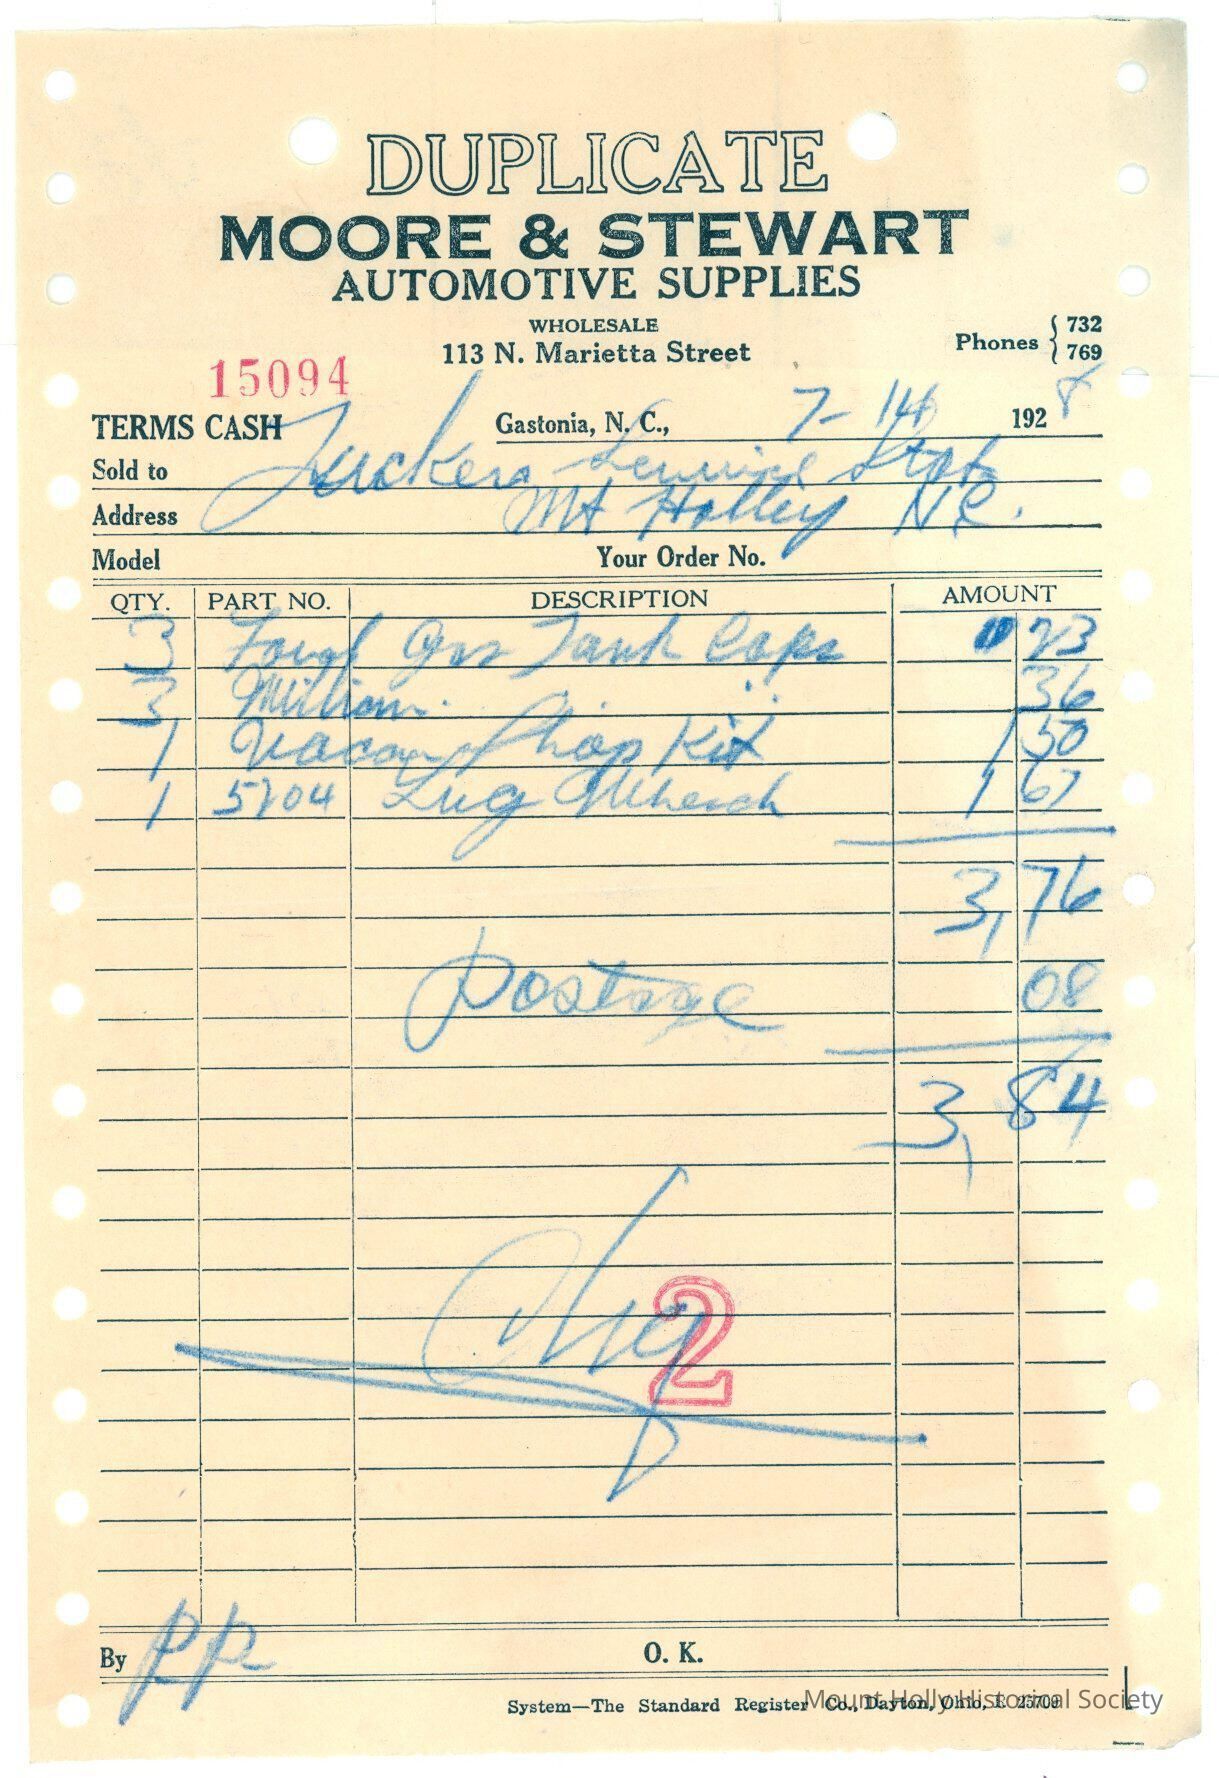 DUPLICATE
MOORE & STEWART
AUTOMOTIVE SUPPLIES
WHOLESALE
113 N. Marietta Street
Phones { 732
769
15094
TERMS CASH Gastonia, N. C., 7-14 1928
Sold to Tuckers Service Stat
Address Mt Holley N.C.
Model Your Order No.
QTY. PART NO. DESCRIPTION AMOUNT
3 Gas Tank Caps 23
3 " 36
1 Shop Kit 1 50
1 5704 Lug Whench 1 67
3,76
Postage 08
3,84
Chg
2
By PP O. K.
System—The Standard Register Co., Dayton, Ohio,
Mount Holly Historical Society